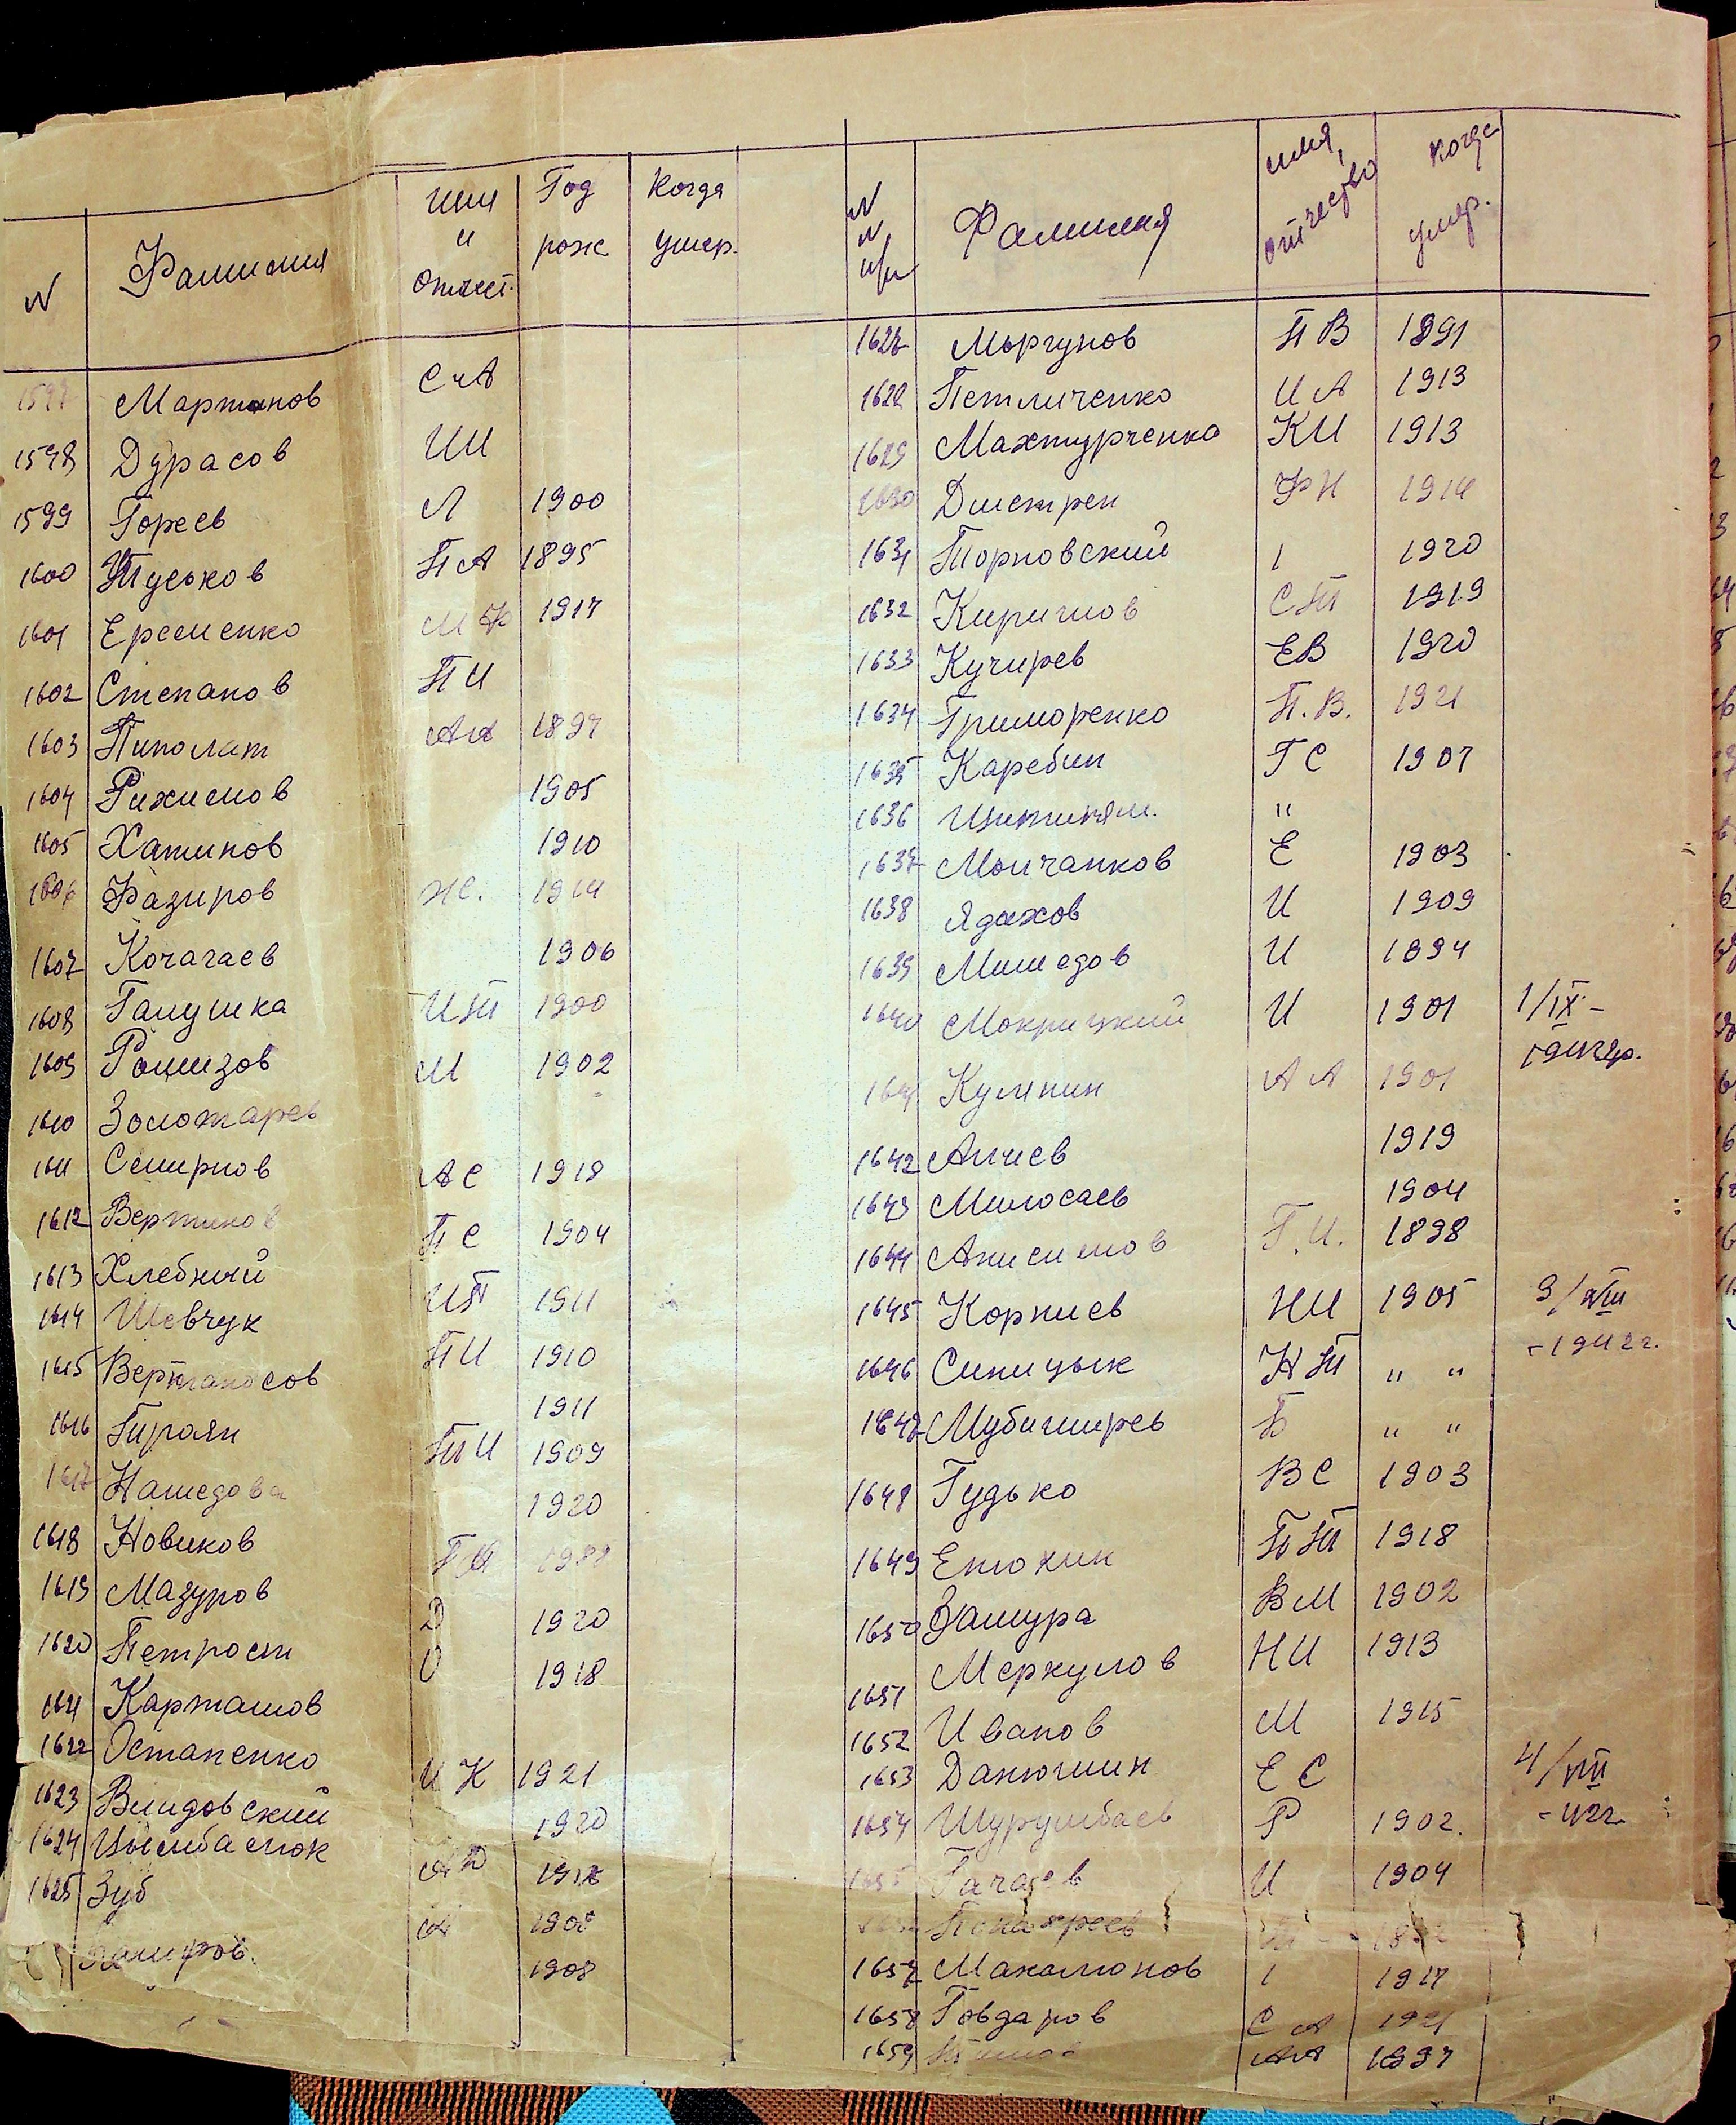 N Фамилия Имя и Отчест. Год рож Когда умер.
Мартынов С А
1598 Дурасов И И
1599 Гореев Л 1900
1600 Туськов П А 1895
1601 Еременко М Ф 1917
1602 Степанов П И
1603 Пиполат А А 1897
1604 Рахимов 1905
1605 Хатипов 1910
1606 Фазиров Ж. 1914
1607 Кочагаев 1906
1608 Галушка И Т 1900
1609 Рамизов М 1902
1610 Золотарев
1611 Смирнов А С 1918
1612 Вертинов П С 1904
1613 Хлебний И П 1911
1614 Шевчук П И 1910
1615 1911
1616 Гироян Т И 1909
1617 Намедова 1920
1618 Новиков
1619 Мазуров Д 1920
1620 Петрост О 1918
1621 Карташов
1622 Остапенко И К 1921
1623 Вишдовский 1920
1624 Цымбалюк А Д
1625 Зуб А 1908
1908
N N п/п Фамилия имя, отчество когда умер.
Моргунов П В 1891
Петличенко И А 1913
1629 Махтурченко К И 1913
1630 Дмитрен Ф Н 1914
1631 Торповский 1920
1632 Киримов С Т 1919
1633 Кучирев Е В 1920
1634 Гриморенко П. В. 1921
1635 Каребин Г С 1907
1636 "
1637 Молчанков Е 1903
1638 Ядахов И 1909
1639 Мамедов И 1894
1640 Мокрицкий И 1901 1/IX-
1942гр.
1641 Кулепин А А 1901
1642 Алиев 1919
1643 Милосаев 1904
1644 Анисимов Г. И. 1898
1645 Корниев Н И 1905 3/VIII
-1942г.
1646 Синицык Н Т " "
1647 Мубаширев Б " "
1648 Гудько В С 1903
1649 Енюхин П Т 1918
1650 Замура В М 1902
1651 Меркулов Н И 1913
1652 Иванов М 1915
1653 Данюшин Е С 4/VIII
-42г.
1654 Шурумбаев Р 1902.
1655 Гачаев И 1904
1657 Макамонов 1917
1658 Говдаров С А 1921
1659 А А 1897